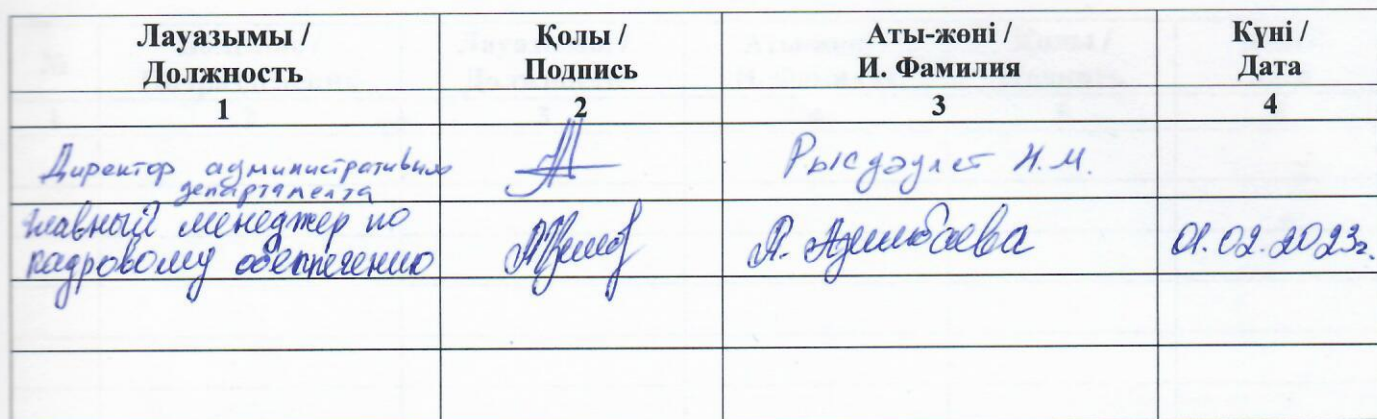 Лауазымы / Должность
Қолы / Подпись
Аты-жөні / И. Фамилия
Күні / Дата
1 2 3 4
Директор административного департамента
Рысдәулет Н.М.
главный менеджер по кадровому обеспечению
А.
01.02.2023г.